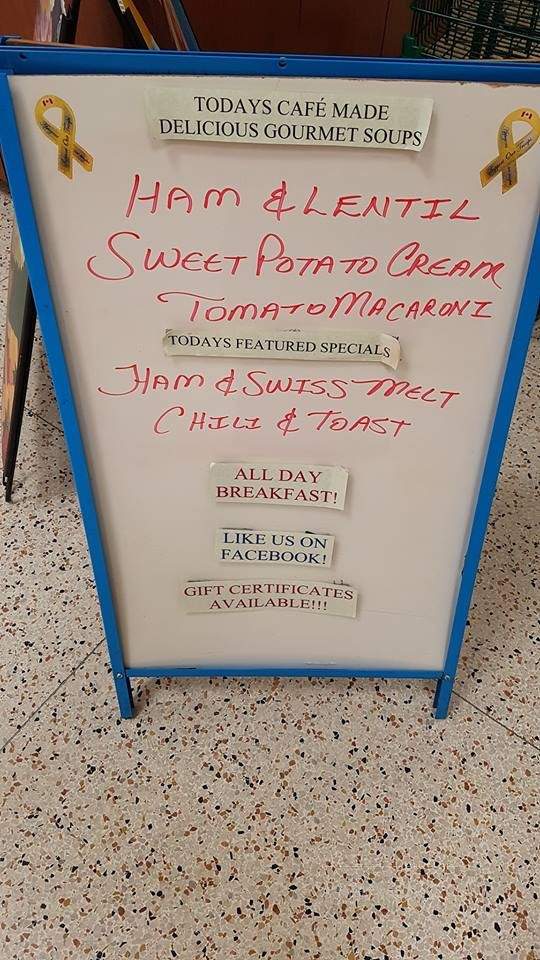 TODAYS CAFÉ MADE
DELICIOUS GOURMET SOUPS
HAM & LENTIL
SWEET POTATO CREAM
TOMATO MACARONI
TODAYS FEATURED SPECIALS
HAM & SWISS MELT
CHILI & TOAST
ALL DAY
BREAKFAST!
LIKE US ON
FACEBOOK!
GIFT CERTIFICATES
AVAILABLE!!!